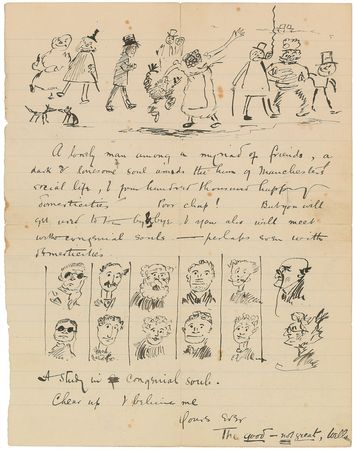 A lonely man among a myriad of friends, a
dark & lonesome soul amidst the hum of Manchester
social life, & four hundred thousand happy
domesticities! Poor chap! But you will
get used to by & bye & you also will meet
with congenial souls — perhaps even with
domesticities.
A study in congenial souls.
Cheer up & believe me
Yours ever
The good — not great, Willie